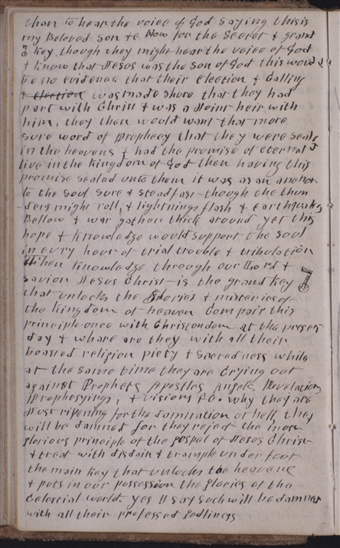 than to hear the voice of God saying this is
my Beloved Son &c Now for the Secret & grand
key though they might hear the voice of God
& know that Jesus was the Son of God this would
be no evidence that their election & Calling
was made shure that they had
part with Christ & was a Joint heir with
him, they then would want that more
sure word of Prophecy that they were seald
in the heavens & had the promise of eternal
live in the Kingdom of God then having this
promise sealed unto them it was as an anchor
to the soul sure & steadfast though the thun
ders might roll, & lightnings flash & earthquakes
Bellow & war gather thick around yet this
hope & knowledge would support the soul
in evry hour of trial trouble & tribulation
Then knowledge through our Lord &
savior Jesus Christ is the grand key
that unlocks the glories & misteries of
the kingdom of heaven Compair this
principle once with Christendom at the present
day & whare are they with all their
boasted religion piety & sacredness while
at the same time they are Crying out
against Prophets Apostles Angels Revelations
Prophesyings, & visions &c. Why they are
Just ripening for the damnation of hell, they
will be damned for they reject the most
glorious principle of the gospel of Jesus Christ
& treat with disdain & trample under foot
the main key that unlocks the heavens
& puts in our possession the glories of the
Celestial world. yes I say such will be damned
with all their professed godliness